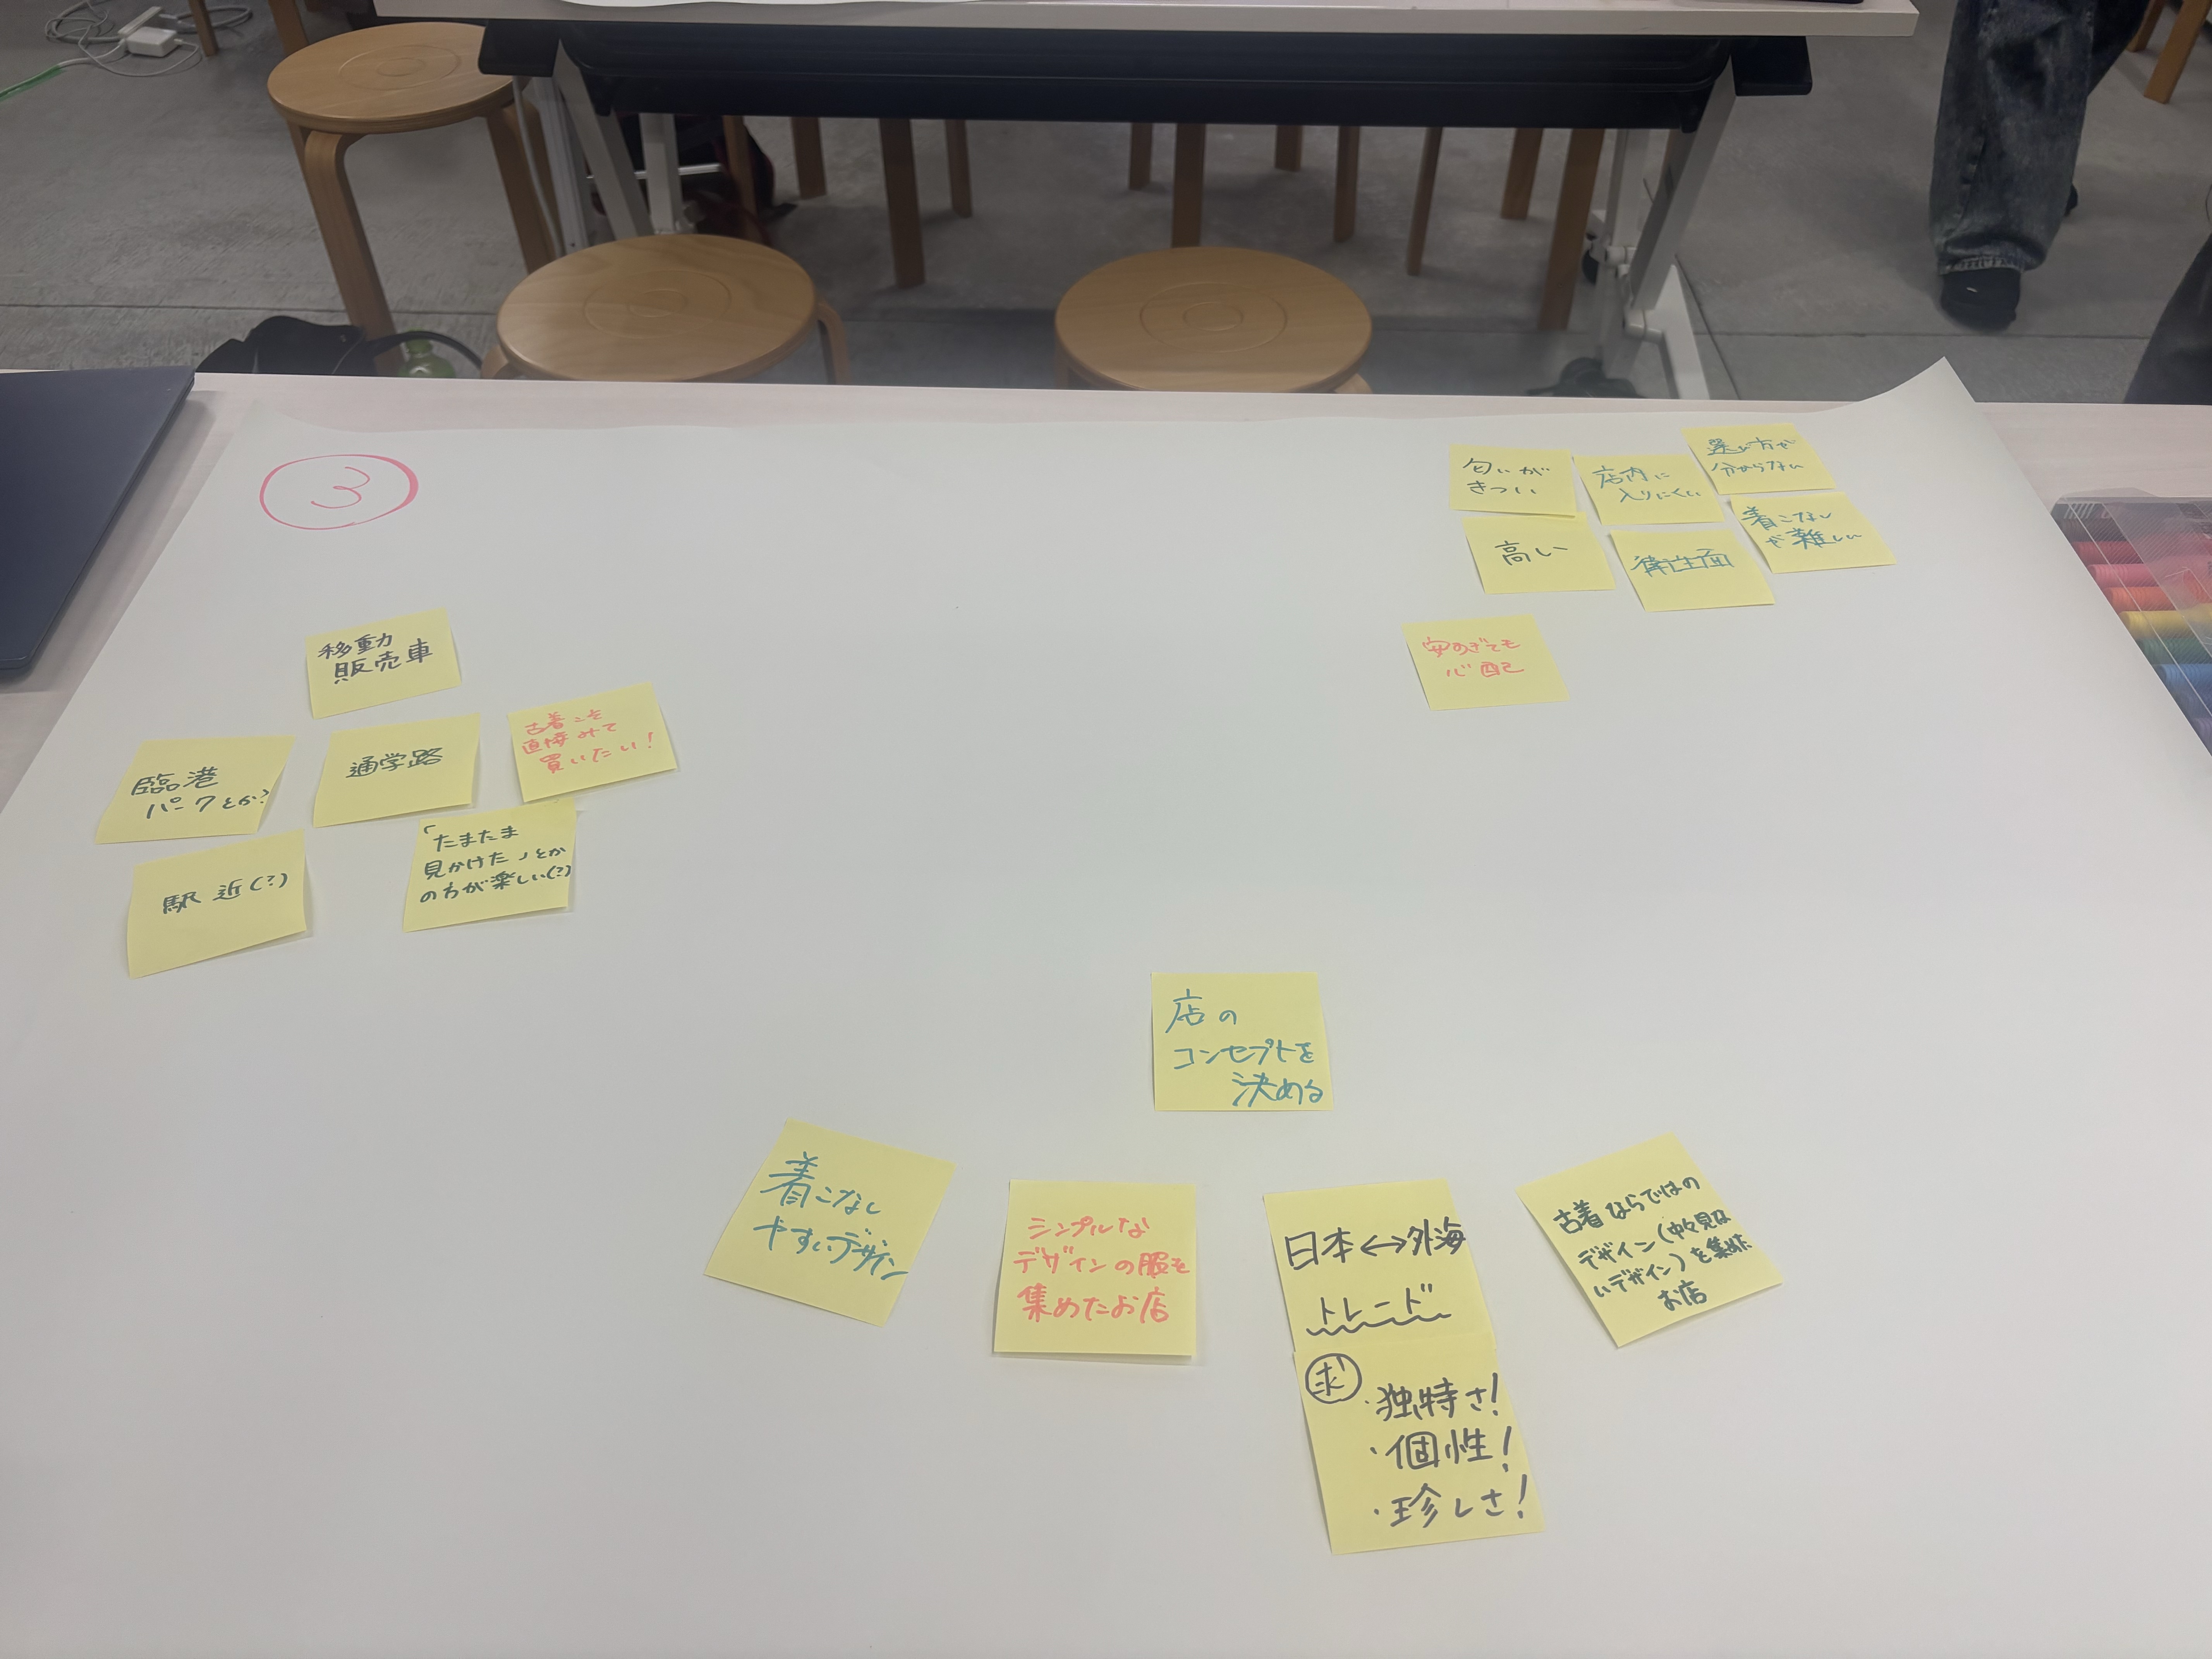 3
匂いが
きつい
店内に
入りにくい
選び方が
分からない
高い
衛生面
着こなし
が難しい
安すぎても
心配
移動
販売車
臨港
パークとか?
通学路
古着こそ
直接みて
買いたい!
駅近(?)
「たまたま
見かけた」とか
の方が楽しい(?)
店の
コンセプトを
決める
着こなし
やすいデザイン
シンプルな
デザインの服を
集めたお店
日本↔外海
トレンド
求
・独特さ!
・個性!
・珍しさ!
古着ならではの
デザイン(中々見な
いデザイン)を集めた
お店